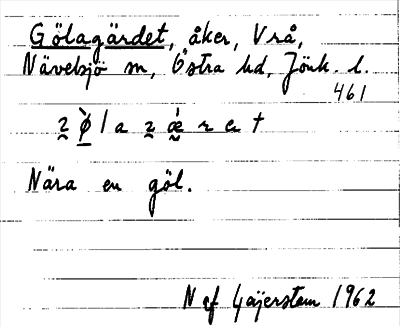 Gölagärdet, åker, Vrå,
Nävelsjö sn, Östra hd, Jönk. l.
461
Nära en göl.
N af Geijerstam 1962